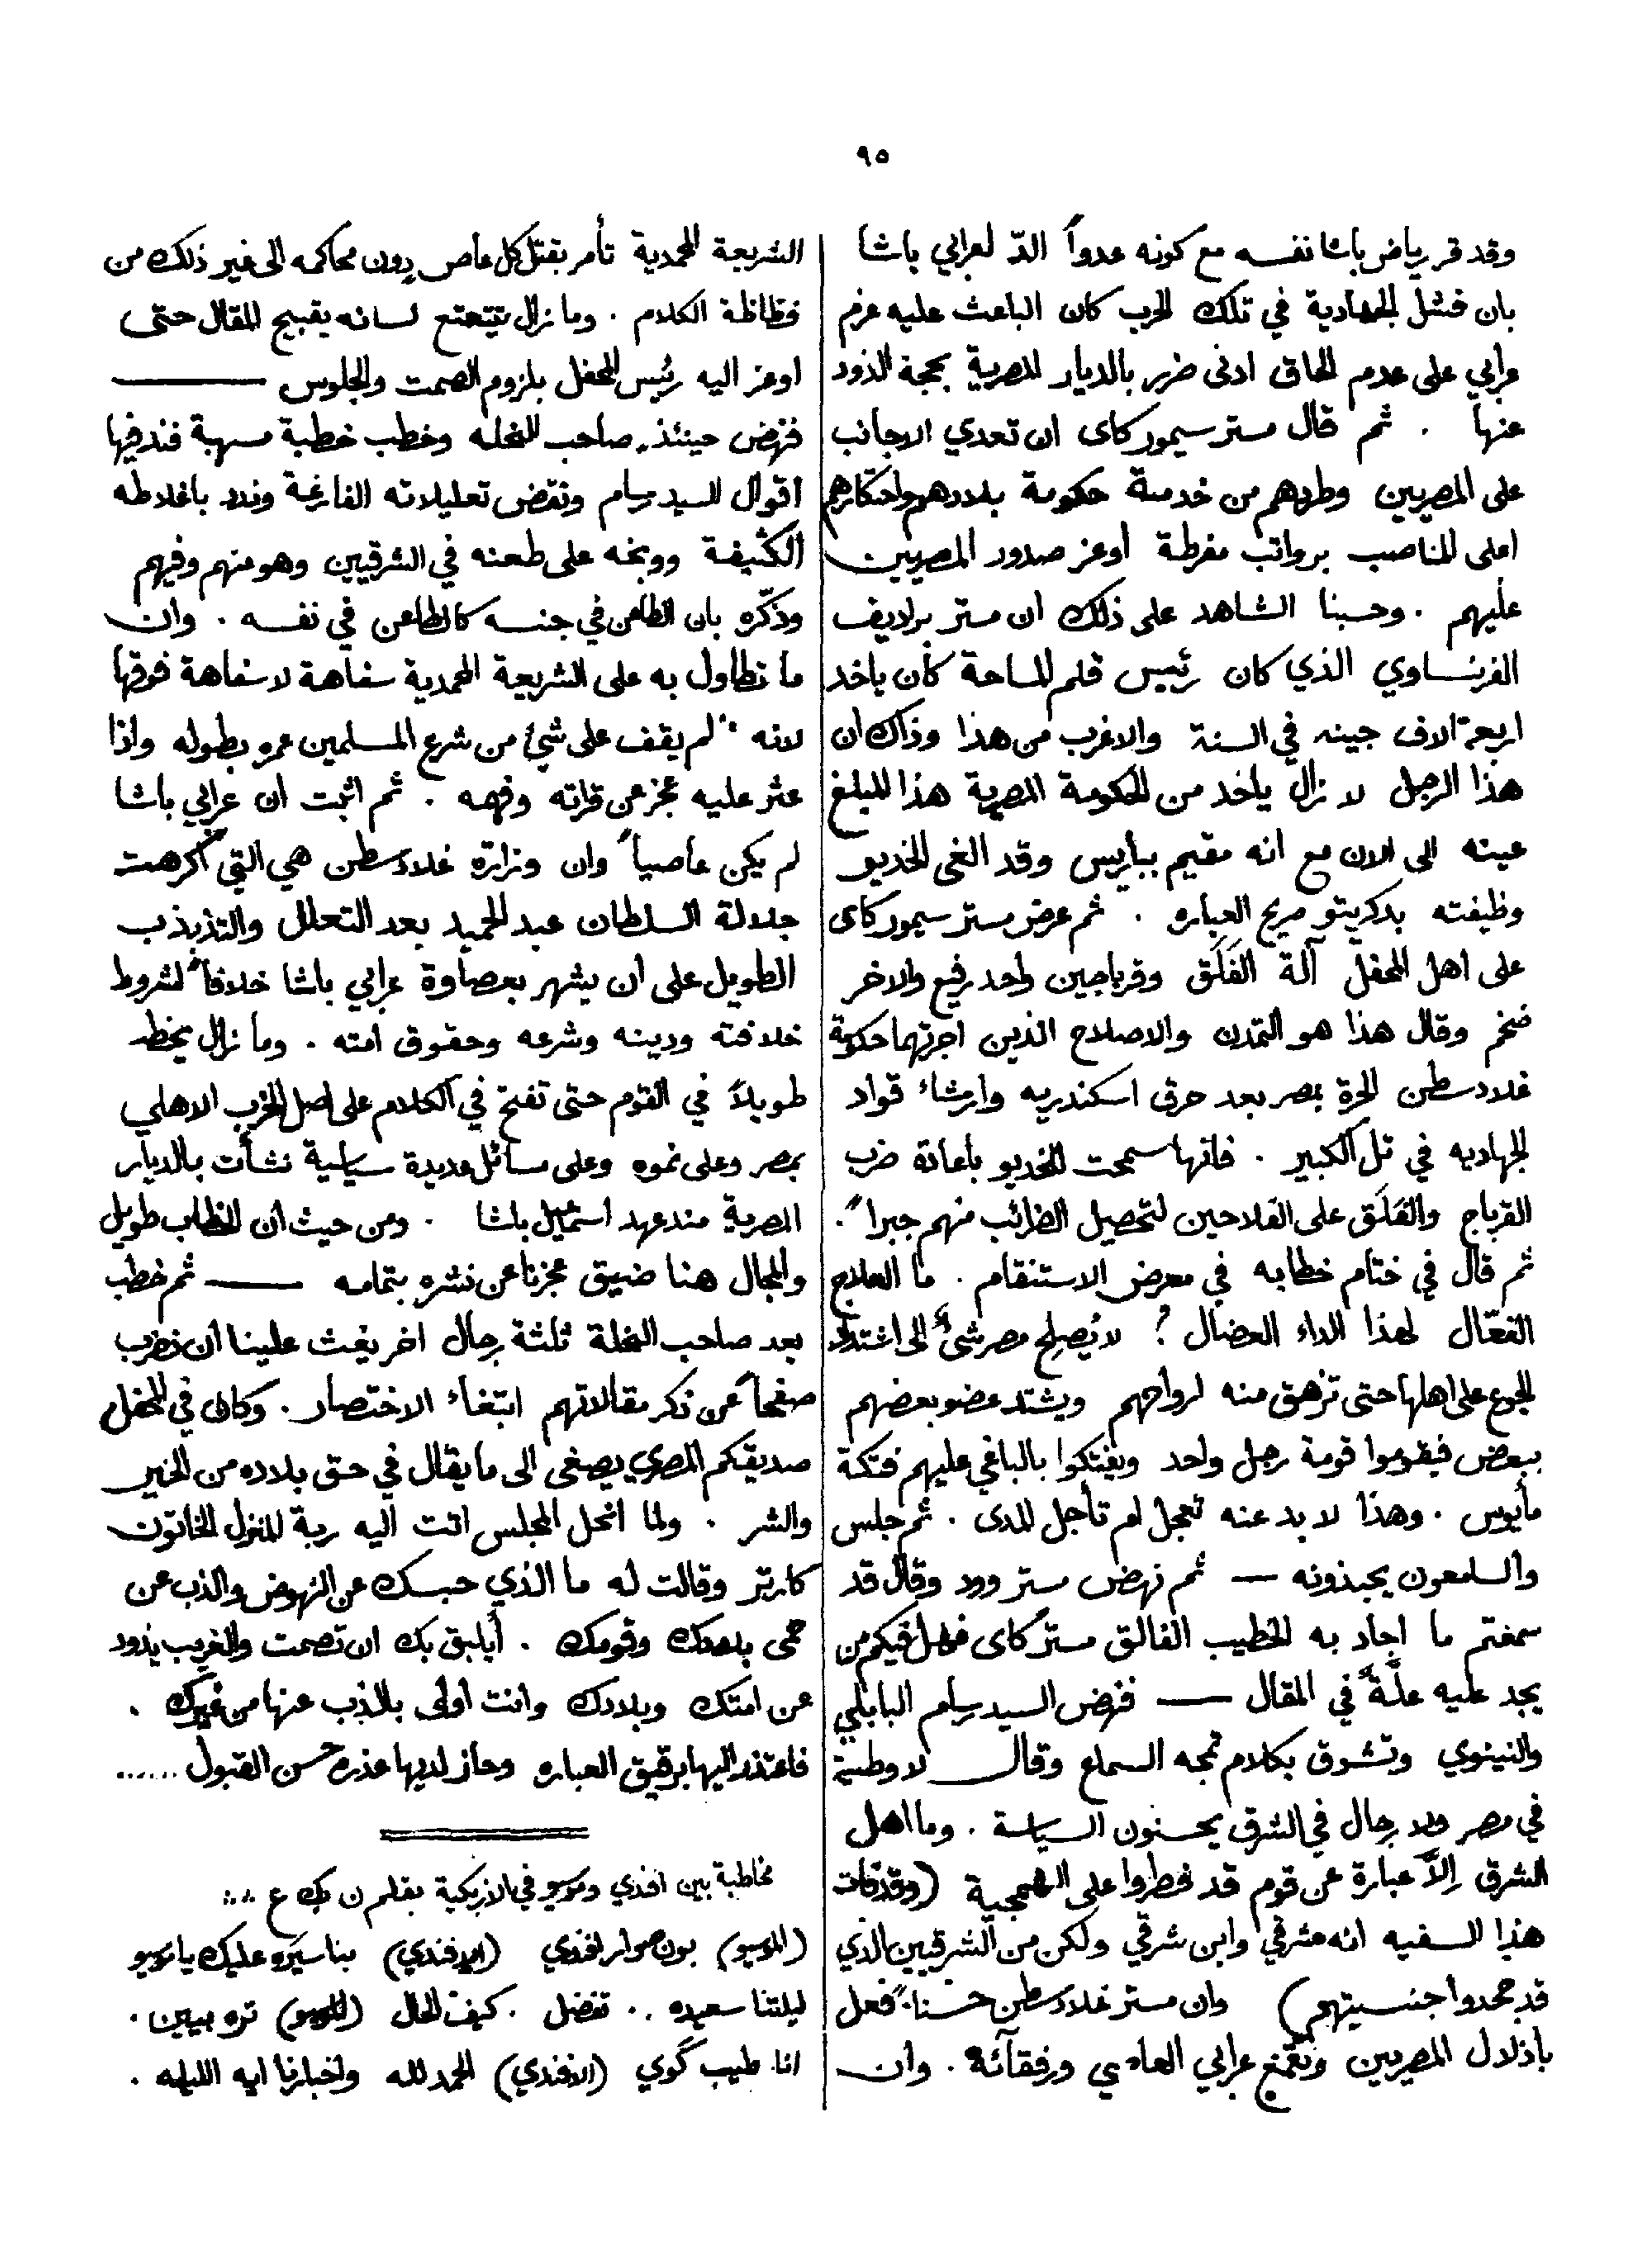 ٩٥
وقد قر رياض باشا نفسه مع كونه عدواً الدّ لعرابي باشا
بان فشل الجهادية في تلك الحرب كان الباعث عليه عزم
عرابي على عدم الحاق ادنى ضرر بالديار المصرية بحجة الذود
عنها . ثم قال مستر سيمور كاى ان تعدي الاجانب
على المصريين وطردهم من خدمة حكومة بلادهم واحتكارهم
اعلى المناصب برواتب مفرطة أوغز صدور المصريين
عليهم . وحسبنا الشاهد على ذلك ان مستر برلاديف
الفرنساوي الذي كان رئيس قلم المساحة كان ياخد
اربعة الاف جينه في السنة والاغرب من هذا وذاك ان
هذا الرجل لا زال ياخد من الحكومة المصرية هذا المبلغ
عينه الى الان مع انه مقيم بباريس وقد الغى الخديو
وظيفته بدكريتو صريح العباره . ثم عرض مستر سيمور كاى
على اهل المحفل آلة الفَلَق وقرباجين واحد رفيع والاخر
ضخم وقال هذا هو التمدن والاصلاح الذين اجرتهما حكومة
غلادسطن الحرة بمصر بعد حرق اسكندريه وارشاء قواد
الجهاديه في تل الكبير . فانها سمحت للخديو باعادة ضرب
القرباج والفَلَق على الفلاحين لتحصيل الضرائب منهم جبراً .
ثم قال في ختام خطابه في معرض الاستنقام . ما العلاج
الفعّال لهذا الداء العضال ؟ لا يُصلح مصر شئٌ الى اشتداد
الجوع على اهلها حتى تزهق منه ارواحهم ويشتد عضو بعضهم
ببعض فيقوموا قومة رجل واحد ويفتكوا بالباغي عليهم فتكة
مأيوس . وهذا لا بد عنه تعجل ام تأجل المدى . ثم جلس
والسامعون يحبذونه — ثم نهض مستر وود وقال قد
سمعتم ما اجاد به الخطيب الفالق مستر كاى فهل فيكم من
يجد عليه علّةً في المقال — فنهض السيد رسام البابلي
والنينوي وتشوق بكلام تمجه السماع وقال لا وطنية
في مصر ولا رجال في الشرق يحسنون السياسة . وما اهل
الشرق إلاّ عبارة عن قوم قد فطروا على الهمجية (وقد فات
هذا السفيه انه مشرقي وابن شرقي ولكن من الشرقيين الذي
قد جحدوا جنسيتهم) وان مستر غلادسطن حسناً فعل
باذلال المصريين وبقمع عرابي العاصي ورفقائه . وان
الشريعة المحمدية تأمر بقتل كل عاص دون محاكمه الى غير ذلك من
فظاظة الكلام . وما زال يتتعتع لسانه بقبيح المقال حتى
اوعز اليه رئيس المحفل بلزوم الصمت والجلوس —
فنهض حينئذ صاحب النحله وخطب خطبة مسهبة فند فيها
اقوال السيد رسام ونقض تعليلاته الفارغة وندد باغلاطه
الكثيفة ووبخه على طعنه في الشرقيين وهو منهم وفيهم
وذكّره بان الطاعن في جنسه كالطاعن في نفسه . وان
ما تطاول به على الشريعة المحمدية سفاهة لا سفاهة فوقها
لانه لم يقف على شئ من شرع المسلمين عمره بطوله واذا
عثر عليه عجز عن قراته وفهمه . ثم اثبت ان عرابي باشا
لم يكن عاصياً وان وزارة غلادسطن هي التي اكرهت
جلالة السلطان عبد الحميد بعد التعلل والتذبذب
الطويل على ان يشهر بعصاوة عرابي باشا خلافاً لشروط
خلافته ودينه وشرعه وحقوق امته . وما زال يخطب
طويلاً في القوم حتى تفتح في الكلام على اصل الحزب الاهلي
بمصر وعلى نموه وعلى مسائل عديدة سياسية نشأت بالديار
المصرية منذ عهد اسمعيل باشا . ومن حيث ان الخطاب طويل
والمجال هنا ضيق عجزنا عن نشره بتمامه — ثم خطب
بعد صاحب النحلة ثلثة رجال اخر يغث علينا ان نضرب
صفحاً عن ذكر مقالاتهم ابتغاء الاختصار . وكان في المحفل
صديقكم المصري يصغى الى ما يقال في حق بلاده من الخير
والشر . ولما انحل المجلس اتت اليه ربة المنزل الخاتون
كارتر وقالت له ما الذي حبسك عن النهوض والذب عن
حمى بلادك وقومك . أيليق بك ان تصمت والغريب يذود
عن امتك وبلادك وانت اولى بالذب عنها من غيرك .
فاعتذر اليها برقيق العباره وحاز لديها عذره حسن القبول ......
مخاطبة بين افندي وموسيو في الازبكية بقلم ن بك ع
(الموسيو) بون صوار افندي (الافندي) بناسيره عليك يا موسيو
ليلتنا سعيده .. تفضل . كيف الحال (الموسيو) تره بيين .
انا طيب گوي (الافندي) الحمد لله واخبارنا ايه الليله .